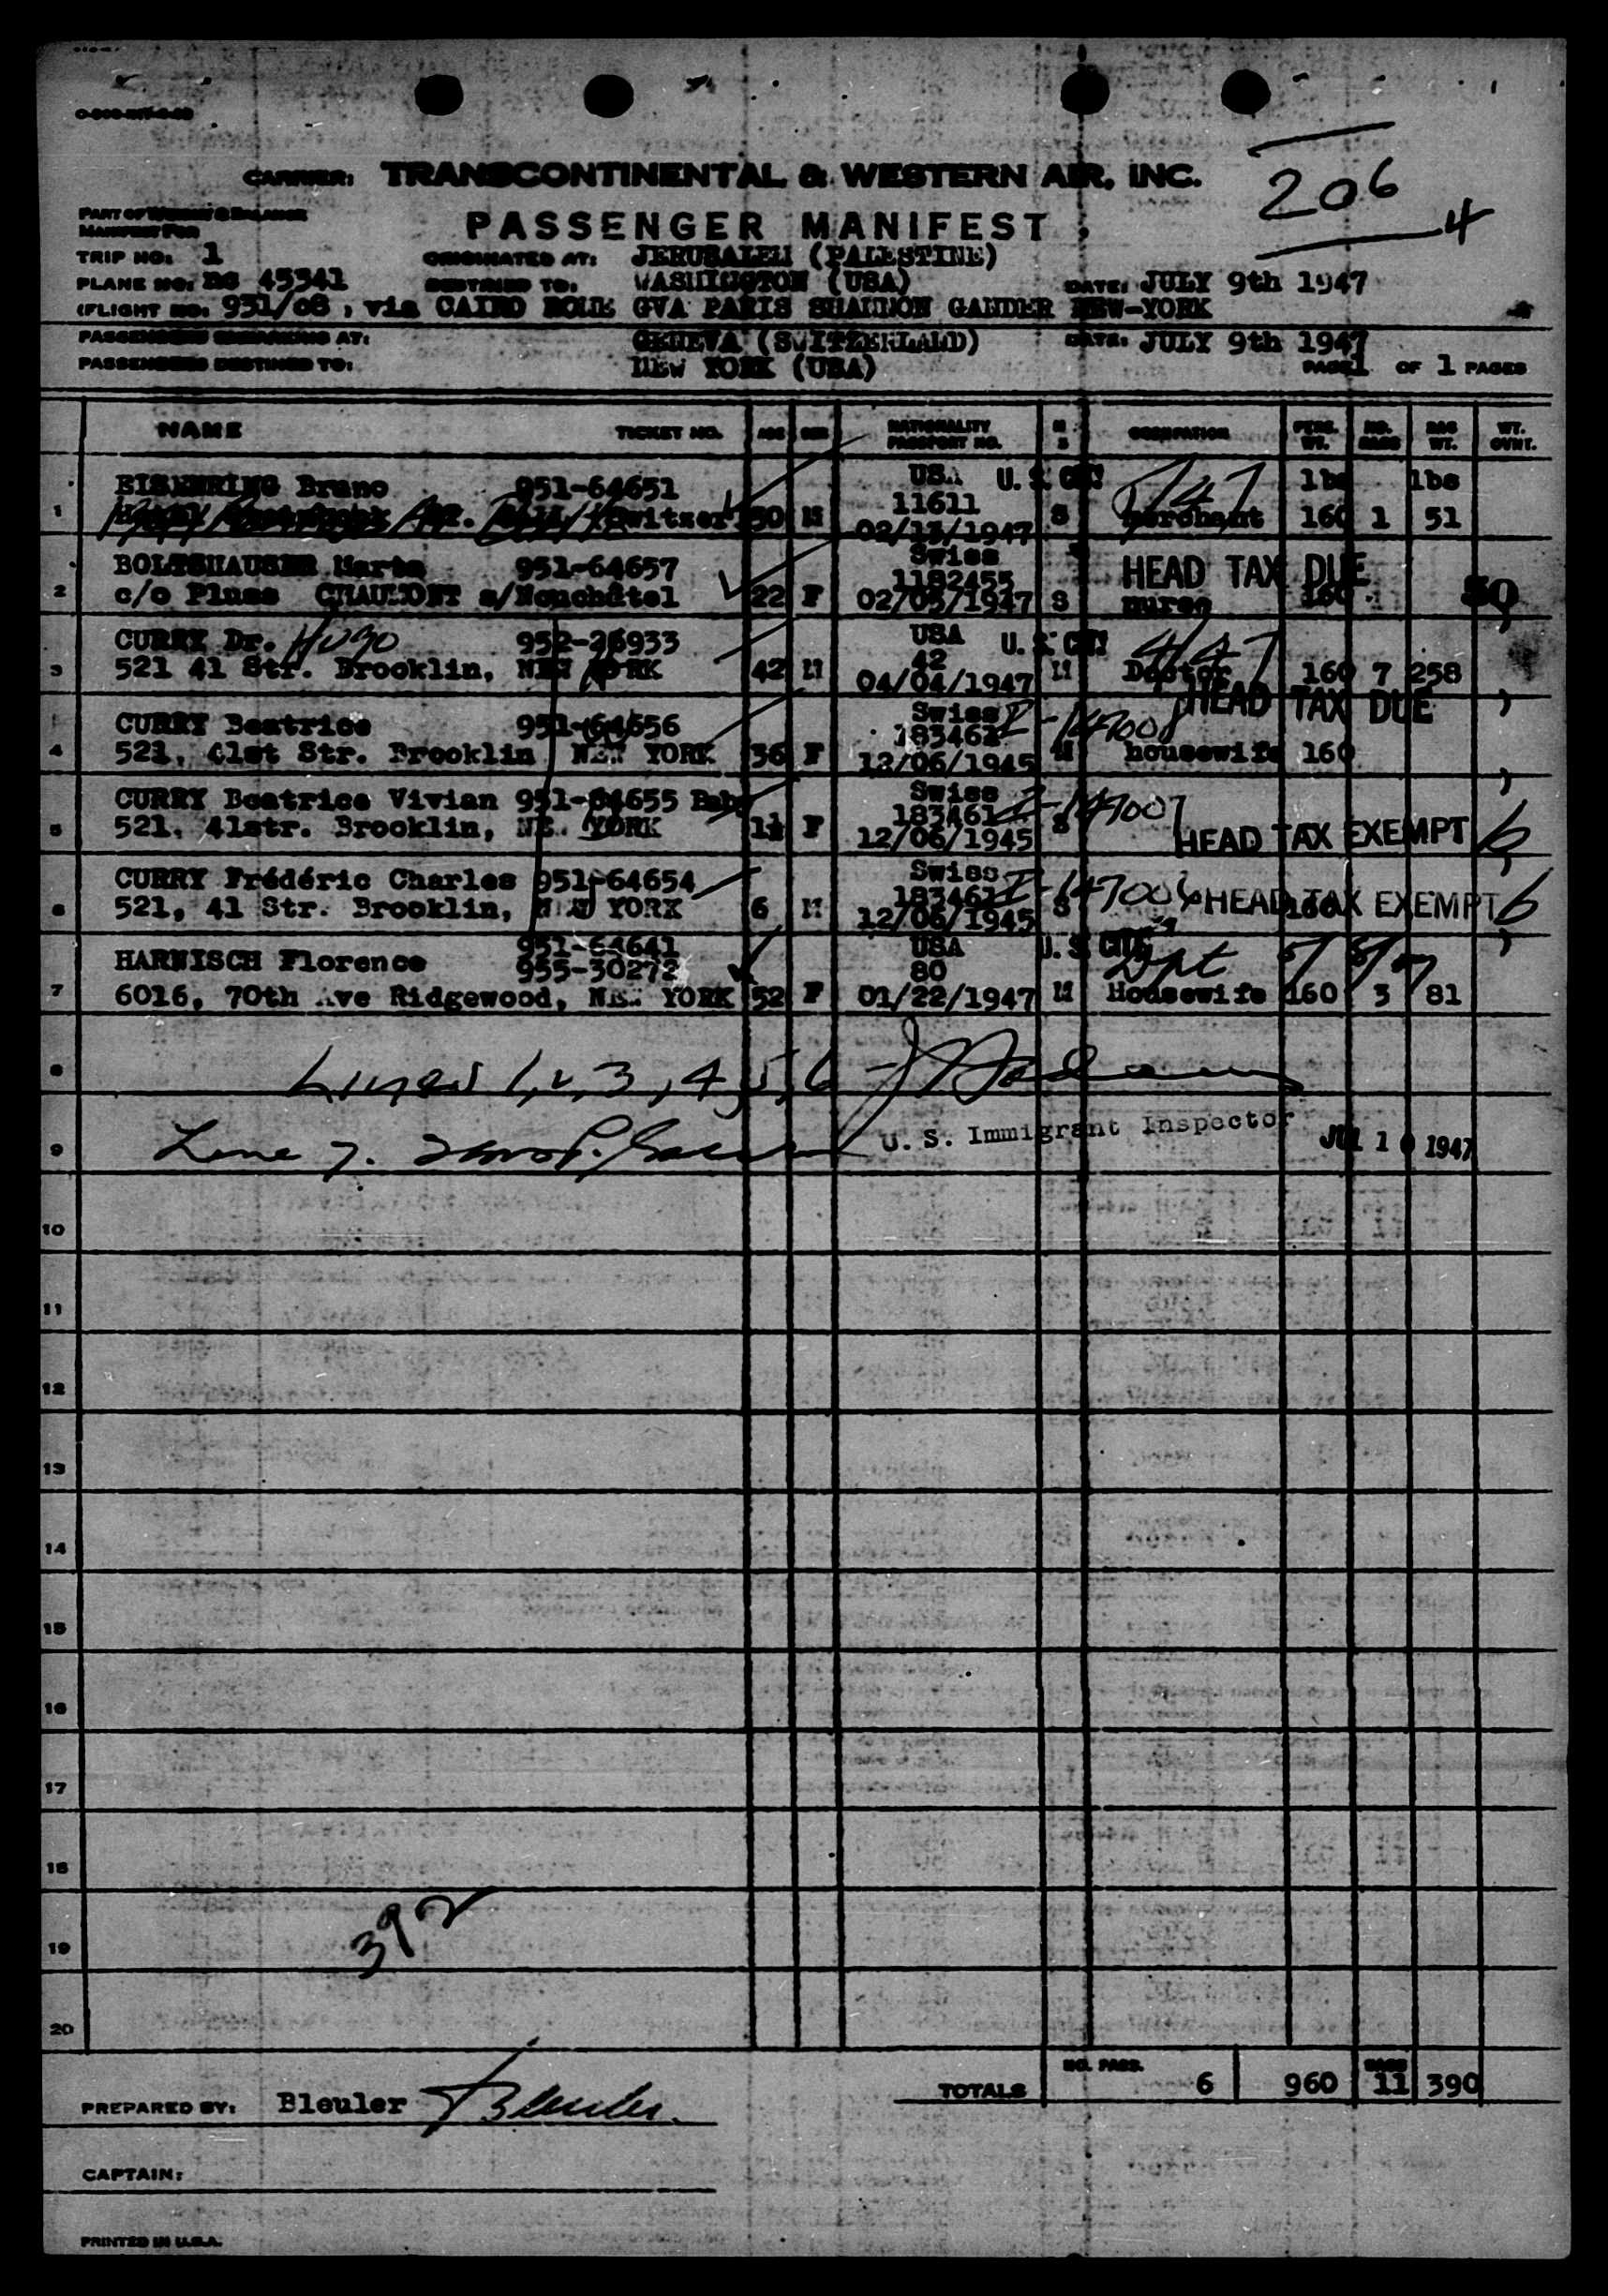 CARRIER: TRANSCONTINENTAL & WESTERN AIR, INC.
206
4
PART OF WEIGHT & BALANCE
MANIFEST FOR
PASSENGER MANIFEST
TRIP NO: 1 ORIGINATED AT: JERUSALEM (PALESTINE)
PLANE NO: NC 45341 DESTINED TO: WASHINGTON (USA) DATE: JULY 9th 1947
(FLIGHT NO. 931/08, via CAIRO ROME GVA PARIS SHANNON GANDER NEW-YORK
PASSENGERS EMBARKING AT: GENEVA (SWITZERLAND) DATE: JULY 9th 1947
PASSENGERS DESTINED TO: NEW YORK (USA) PAGE 1 OF 1 PAGES
NAME TICKET NO. AGE SEX NATIONALITY PASSPORT NO. M S OCCUPATION PERS. WT. NO. BAGS BAG WT. WT. OVNT.
EISENRING Bruno 951-64651 USA U. S. CIT lbs lbs
1 30 M 11611 02/13/1947 S merchant 160 1 51
BOLTSHAUSER Marta 951-64657 Swiss HEAD TAX DUE
2 c/o Pluss CHAUMONT s/Neuchâtel 22 F 1182455 02/05/1947 S nurse 160
CURRY Dr. Hugo 952-26933 USA U. S. CIT
3 521 41 Str. Brooklin, NEW YORK 42 M 42 04/04/1947 M Doctor 160 7 258
CURRY Beatrice 951-64656 Swiss I-147008 HEAD TAX DUE
4 521, 41st Str. Brooklin NEW YORK 36 F 183461 12/06/1945 M housewife 160
CURRY Beatrice Vivian 951-64655 Baby Swiss I-147007
5 521, 41str. Brooklin, NEW YORK 1½ F 183461 12/06/1945 S HEAD TAX EXEMPT 6
CURRY Frédéric Charles 951-64654 Swiss I-147006 HEAD TAX EXEMPT 6
6 521, 41 Str. Brooklin, NEW YORK 6 M 183461 12/06/1945 S 160
951-64641 USA U. S. CIT
HARNISCH Florence 955-30272 80
7 6016, 70th Ave Ridgewood, NEW YORK 52 F 01/22/1947 M Housewife 160 3 81
8 Lines 1, 2, 3, 4, 5, 6
9 Line 7. U. S. Immigrant Inspector JUL 10 1947
10
11
12
13
14
15
16
17
18
19 392
20
TOTALS NO. PASS. 6 960 BAGS 11 390
PREPARED BY: Bleuler Bleuler
CAPTAIN:
PRINTED IN U.S.A.